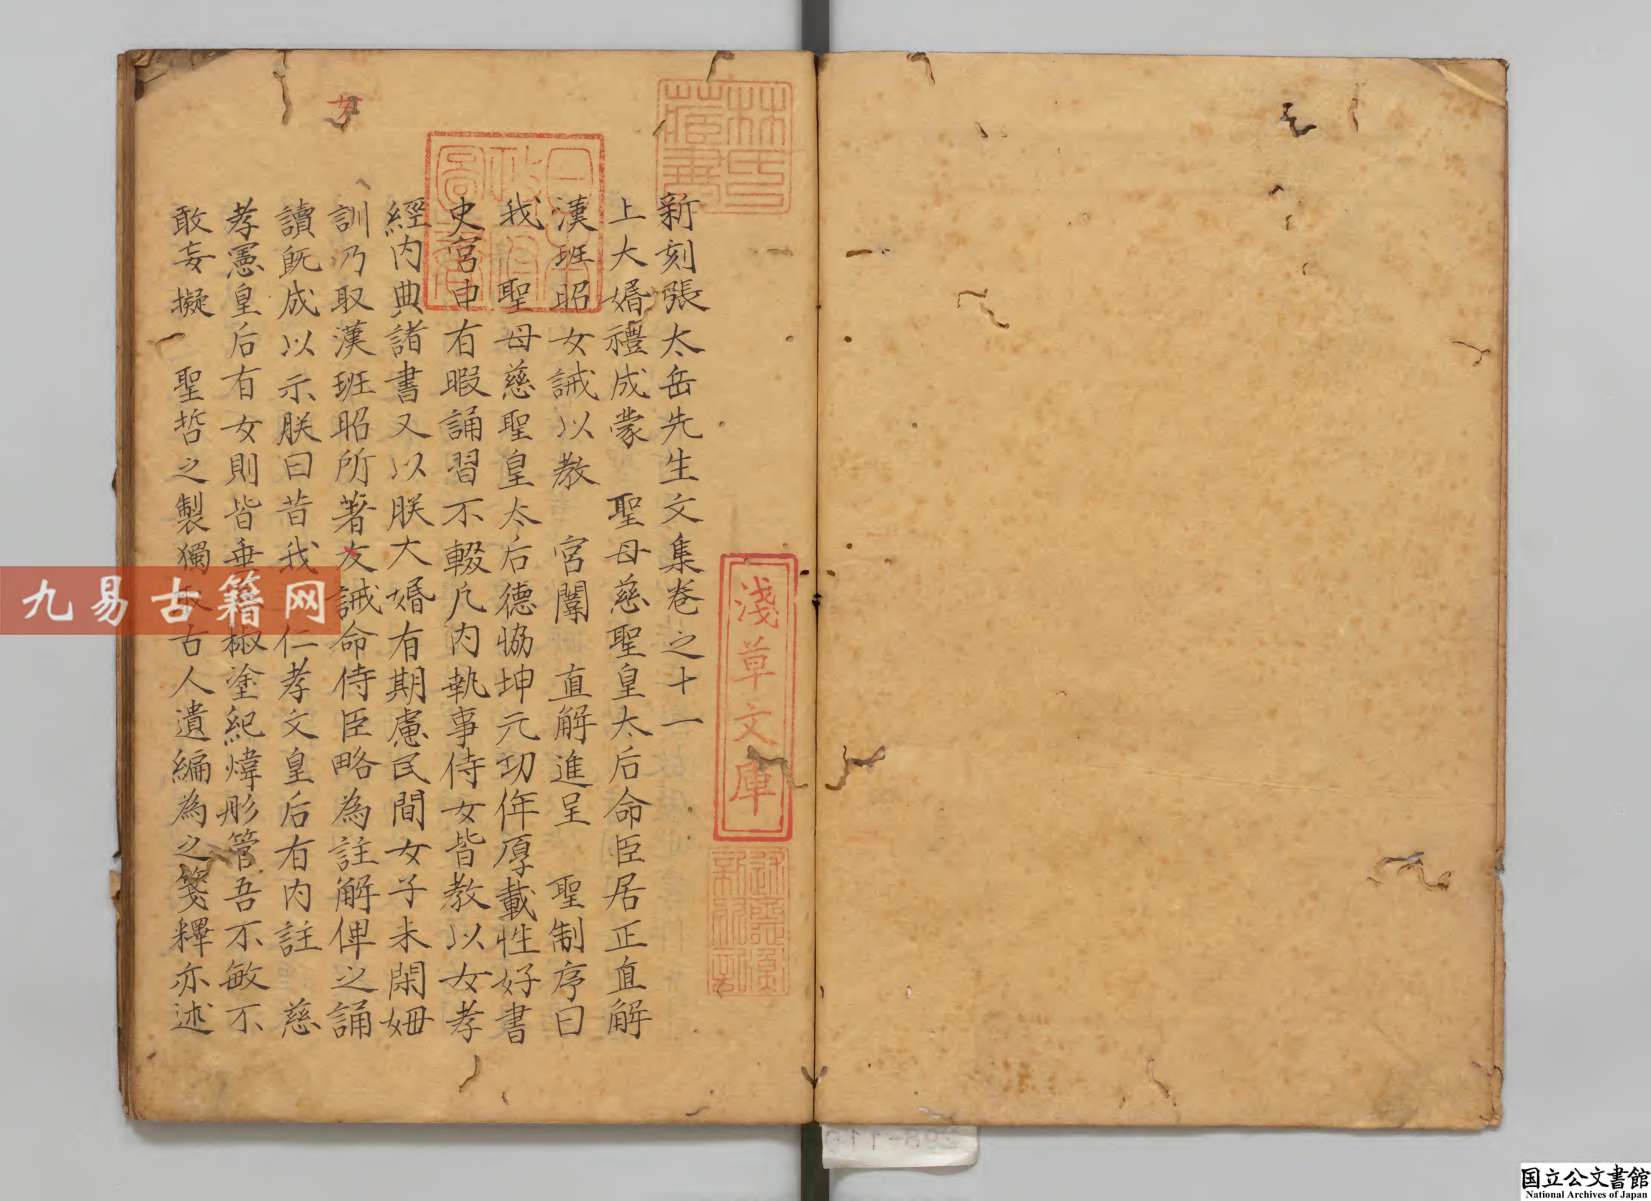 新刻張太岳先生文集卷之十一
上大婚禮成蒙　聖母慈聖皇太后命臣居正直解
漢班昭女誡以教　宮闈　直解進呈　聖制序曰
我　聖母慈聖皇太后德恊坤元功侔厚載性好書
史宮中有暇誦習不輟凡内執事侍女皆教以女孝
經内典諸書又以朕大婚有期慮民間女子未閑姆
訓乃取漢班昭所著女誡命侍臣略為註解俾之誦
讀既成以示朕曰昔我　仁孝文皇后有内註　慈
孝憲皇后有女則皆垂椒塗紀煒彤管吾不敏不
敢妄擬　聖哲之製獨古人遺編為之箋釋亦述
林氏藏書
日本政府圖書
淺草文庫
九易古籍网
国立公文書館
National Archives of Japan